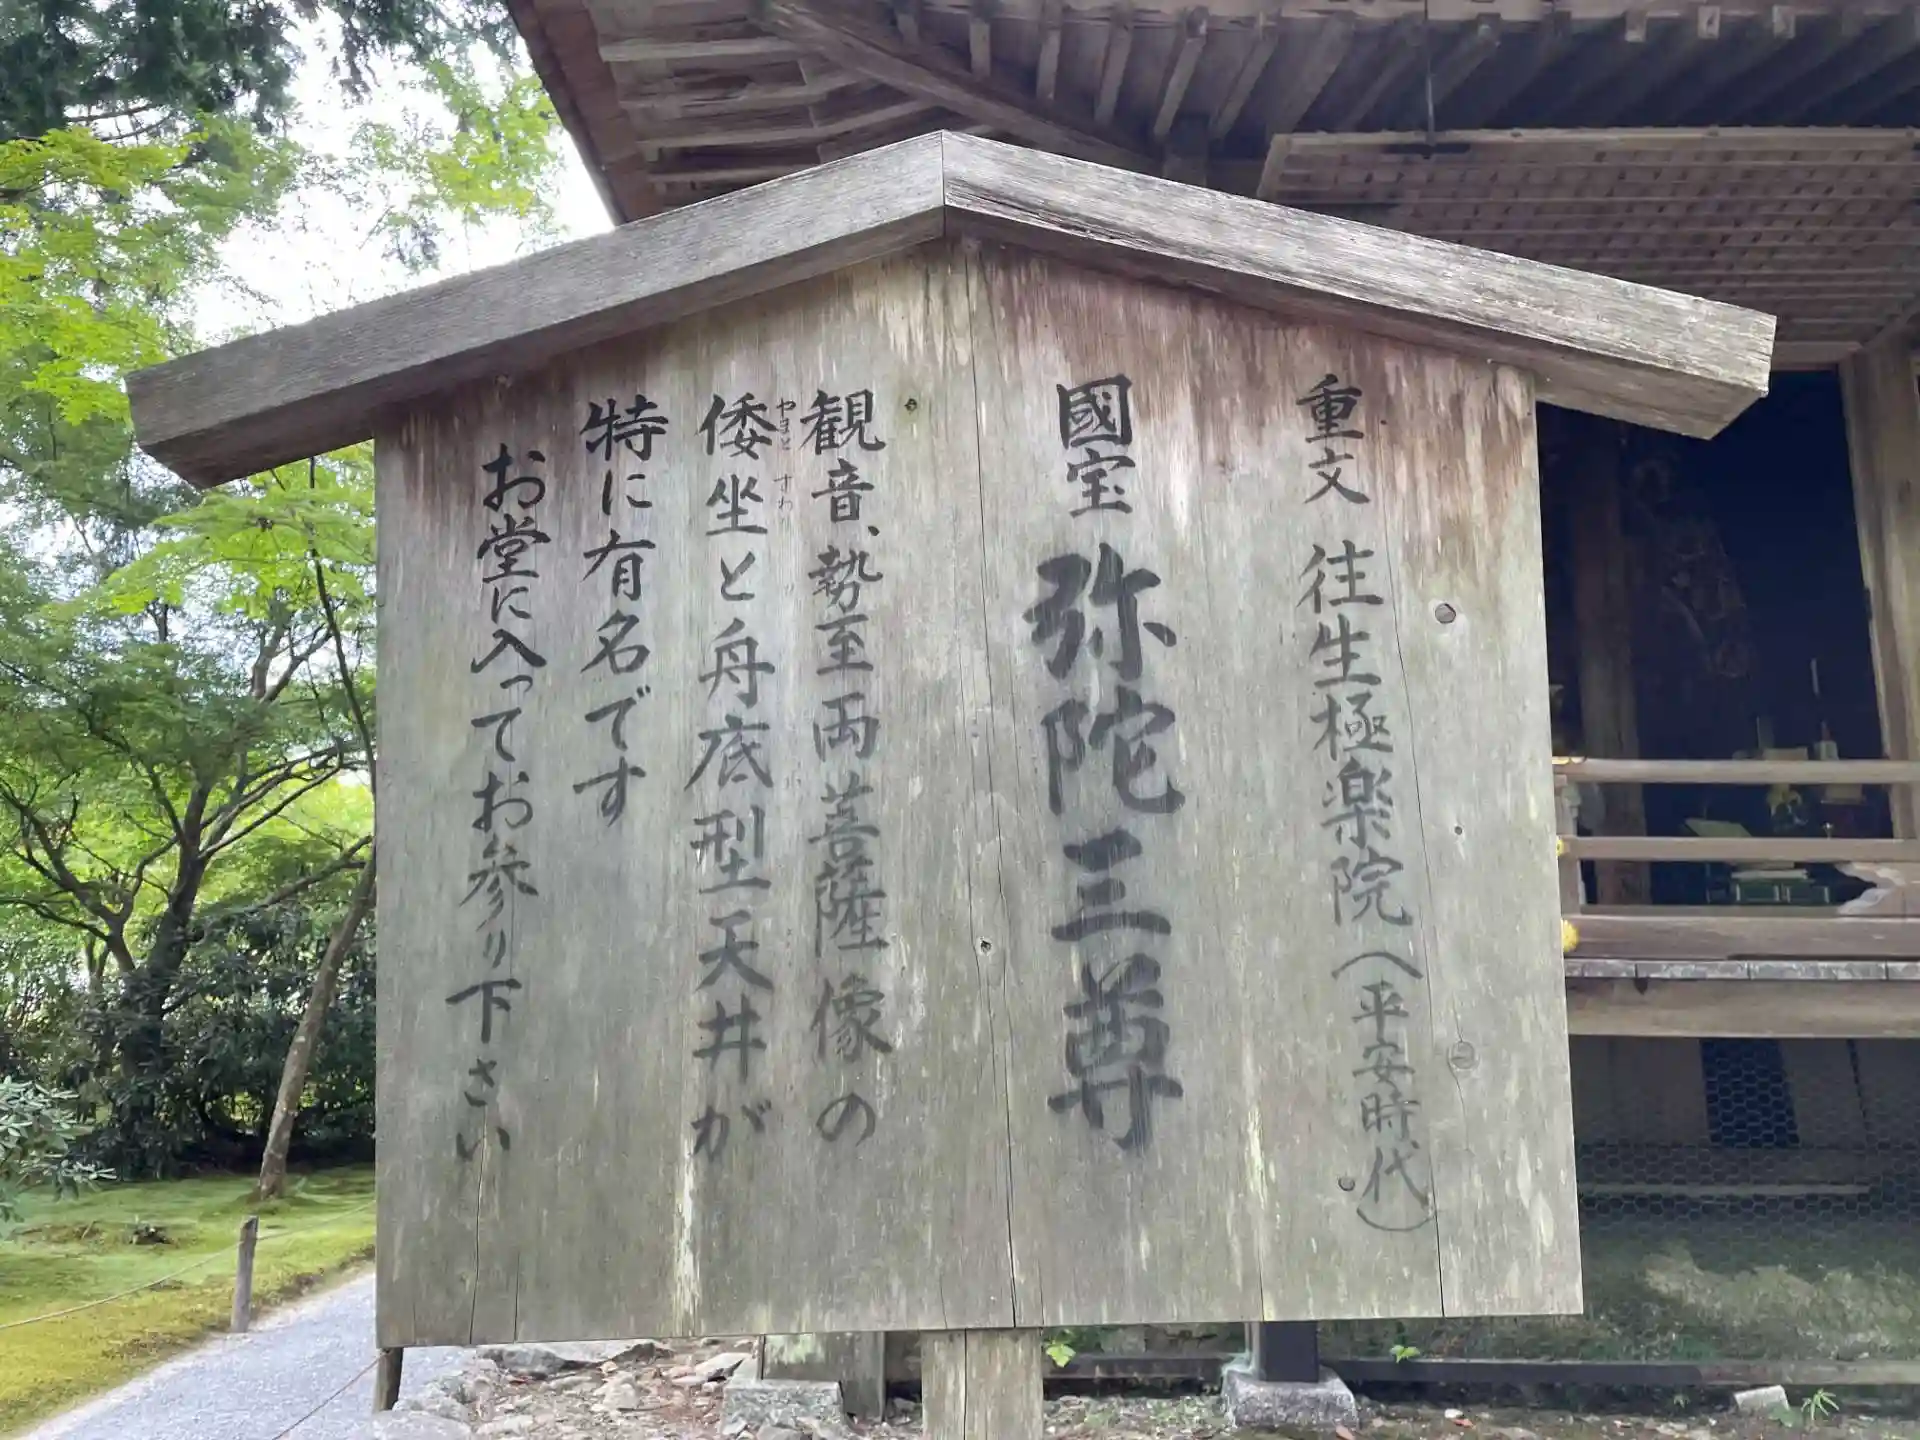 重文 往生極楽院（平安時代）
國宝 弥陀三尊
観音、勢至両菩薩像の
やまと すわり
倭坐と舟底型天井が
特に有名です
お堂に入ってお参り下さい